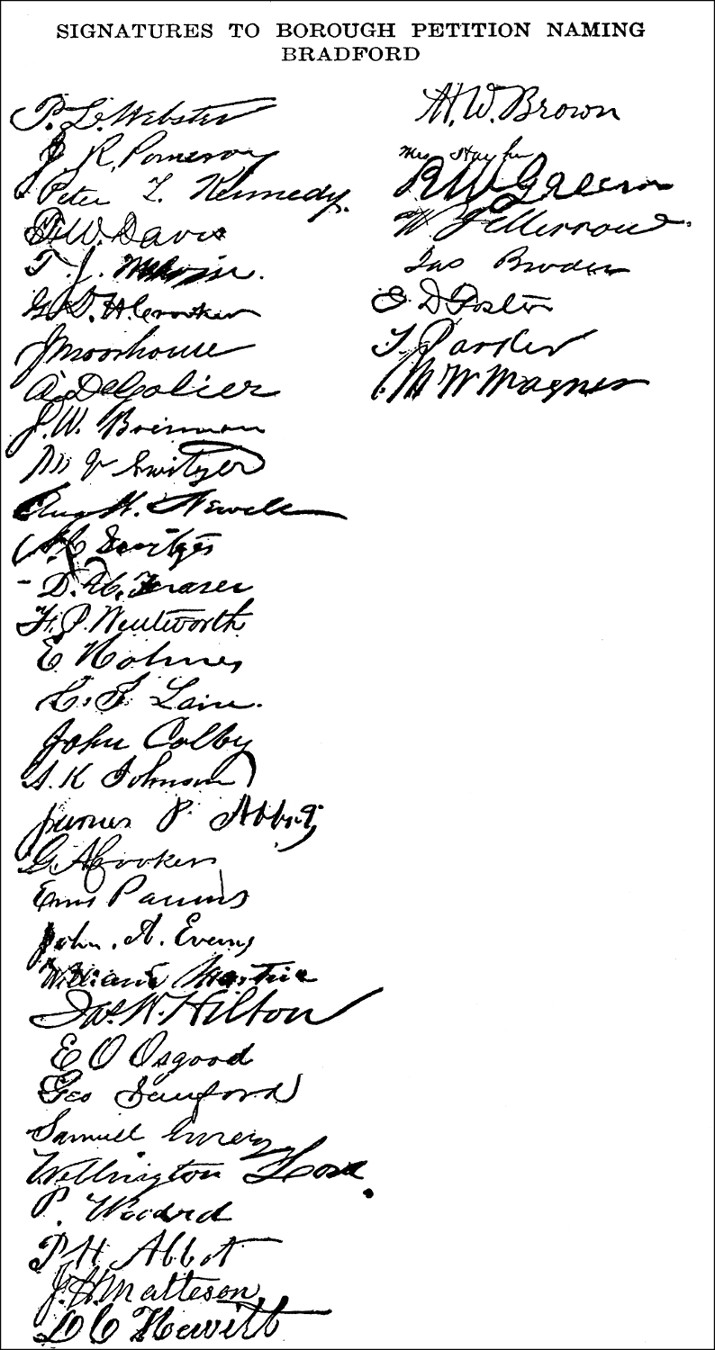 SIGNATURES TO BOROUGH PETITION NAMING
BRADFORD
P. L. Webster
J. R. Pomeroy
Peter T. Kennedy.
P. W. Davis
T. J. Melvin.
G. D. H. Crooker
J Moorhouse
A. DeGolier
J. W. Brennan
M V Switzer
Aug. H. Newell
Switzer
D. H. Fraser
F. P. Wentworth
E Holmes
C. F. Lain.
John Colby
A. K Johnson
James P. Abbott
G. A Crooker
Enos Parsons
John. A. Evans
William Martin
Jas. W. Hilton
E O Osgood
Geo Sanford
Samuel Emery
Wellington Lord.
P. Woodard
P H Abbot
J. H. Matteson
D C Hewitt
H. W. Brown
Mrs
R W Green
W F Merrow
Jas Broder
E D Foster
T. Parker
M W Wagner